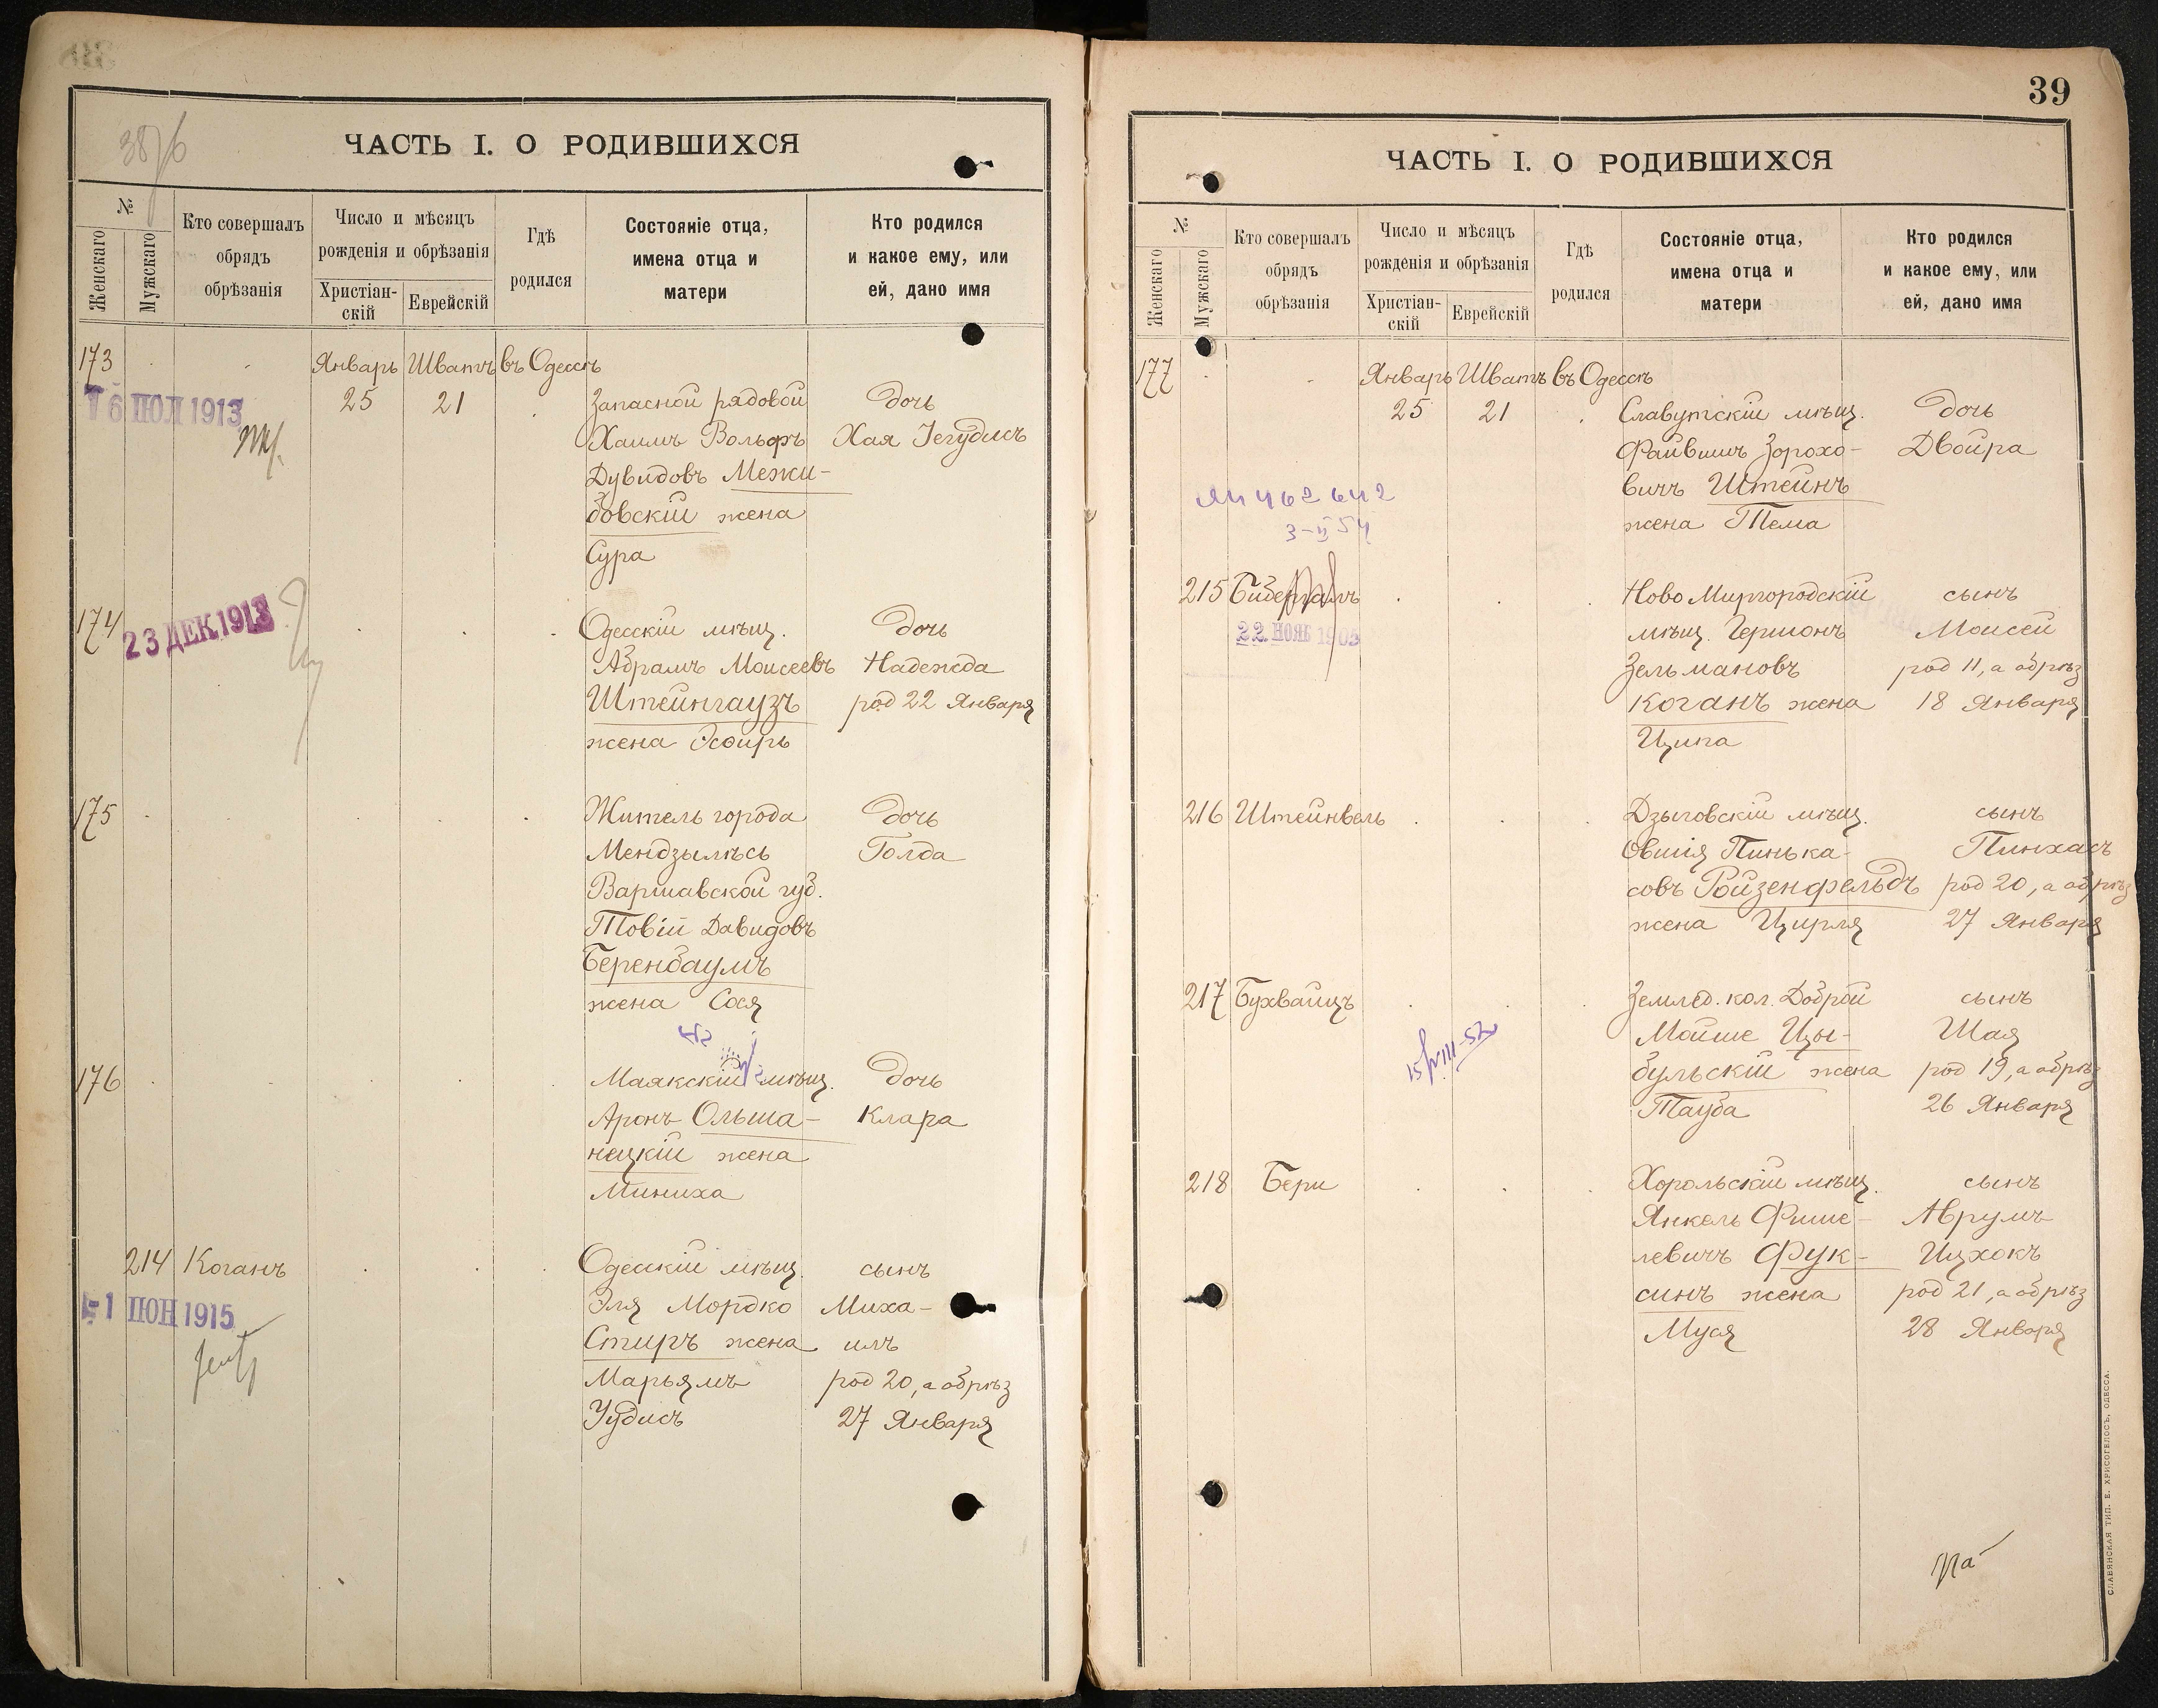 38/6
ЧАСТЬ I. О РОДИВШИХСЯ
№
Женскаго
Мужскаго
Кто совершалъ
обрядъ
обрѣзанія
Число и мѣсяцъ
рожденія и обрѣзанія
Христіан-
скій
Еврейскій
Гдѣ
родился
Состояніе отца,
имена отца и
матери
Кто родился
и какое ему, или
ей, дано имя
173 Январь Шватъ въ Одессѣ
16 ІЮЛ 1913
25 21 Запасной рядовой дочь
Хаимъ Вольфъ Хая Іегудисъ
Дувидовъ Межи-
бовскій жена
Сура
174 Одесскій мѣщ. дочь
23 ДЕК 1913
Абрамъ Моисеевъ Надежда
Штейнгаузъ род 22 Января
жена Эсфирь
175 Житель города дочь
Мендзылѣсь Голда
Варшавской губ.
Товій Давидовъ
Беренбаумъ
жена Сося
176 Маякскій мѣщ. дочь
Аронъ Ольша- Клара
нецкій жена
Миниха
214 Коганъ Одесскій мѣщ. сынъ
-1 ІЮН 1915
Эля Мордко Миха-
Стиръ жена илъ
Марьямъ род 20, а обрѣз
Уудисъ 27 Января
39
ЧАСТЬ I. О РОДИВШИХСЯ
№
Женскаго
Мужскаго
Кто совершалъ
обрядъ
обрѣзанія
Число и мѣсяцъ
рожденія и обрѣзанія
Христіан-
скій
Еврейскій
Гдѣ
родился
Состояніе отца,
имена отца и
матери
Кто родился
и какое ему, или
ей, дано имя
177 Январь Шватъ въ Одессѣ
25 21 Славутскій мѣщ. дочь
Файвишъ Зорохо- Двойра
вичъ Штейнъ
жена Тема
ЯЧ 462642
3-II 54
215 Бидерманъ Ново Миргородскій сынъ
22 НОЯБ 1905
мѣщ. Гершонъ Моисей
Зельмановъ род 11, а обрѣз
Коганъ жена 18 Января
Ципа
216 Штейнвель Дзыговскій мѣщ. сынъ
Овшія Пинька- Пинхасъ
совъ Ройзенфельдъ род 20, а обрѣз
жена Цирля 27 Января
217 Бухвайцъ Землед. кол. Доброй сынъ
Мойше Цы- Шая
15/VIII-52
бульскій жена род 19, а обрѣз
Тауба 26 Января
218 Бери Хорольскій мѣщ. сынъ
Янкель Фише- Аврумъ
левичъ Фук- Ицхокъ
синъ жена род 21, а обрѣз
Муся 28 Января
СЛАВЯНСКАЯ ТИП. Е. ХРИСОГЕЛОСЪ, ОДЕССА.